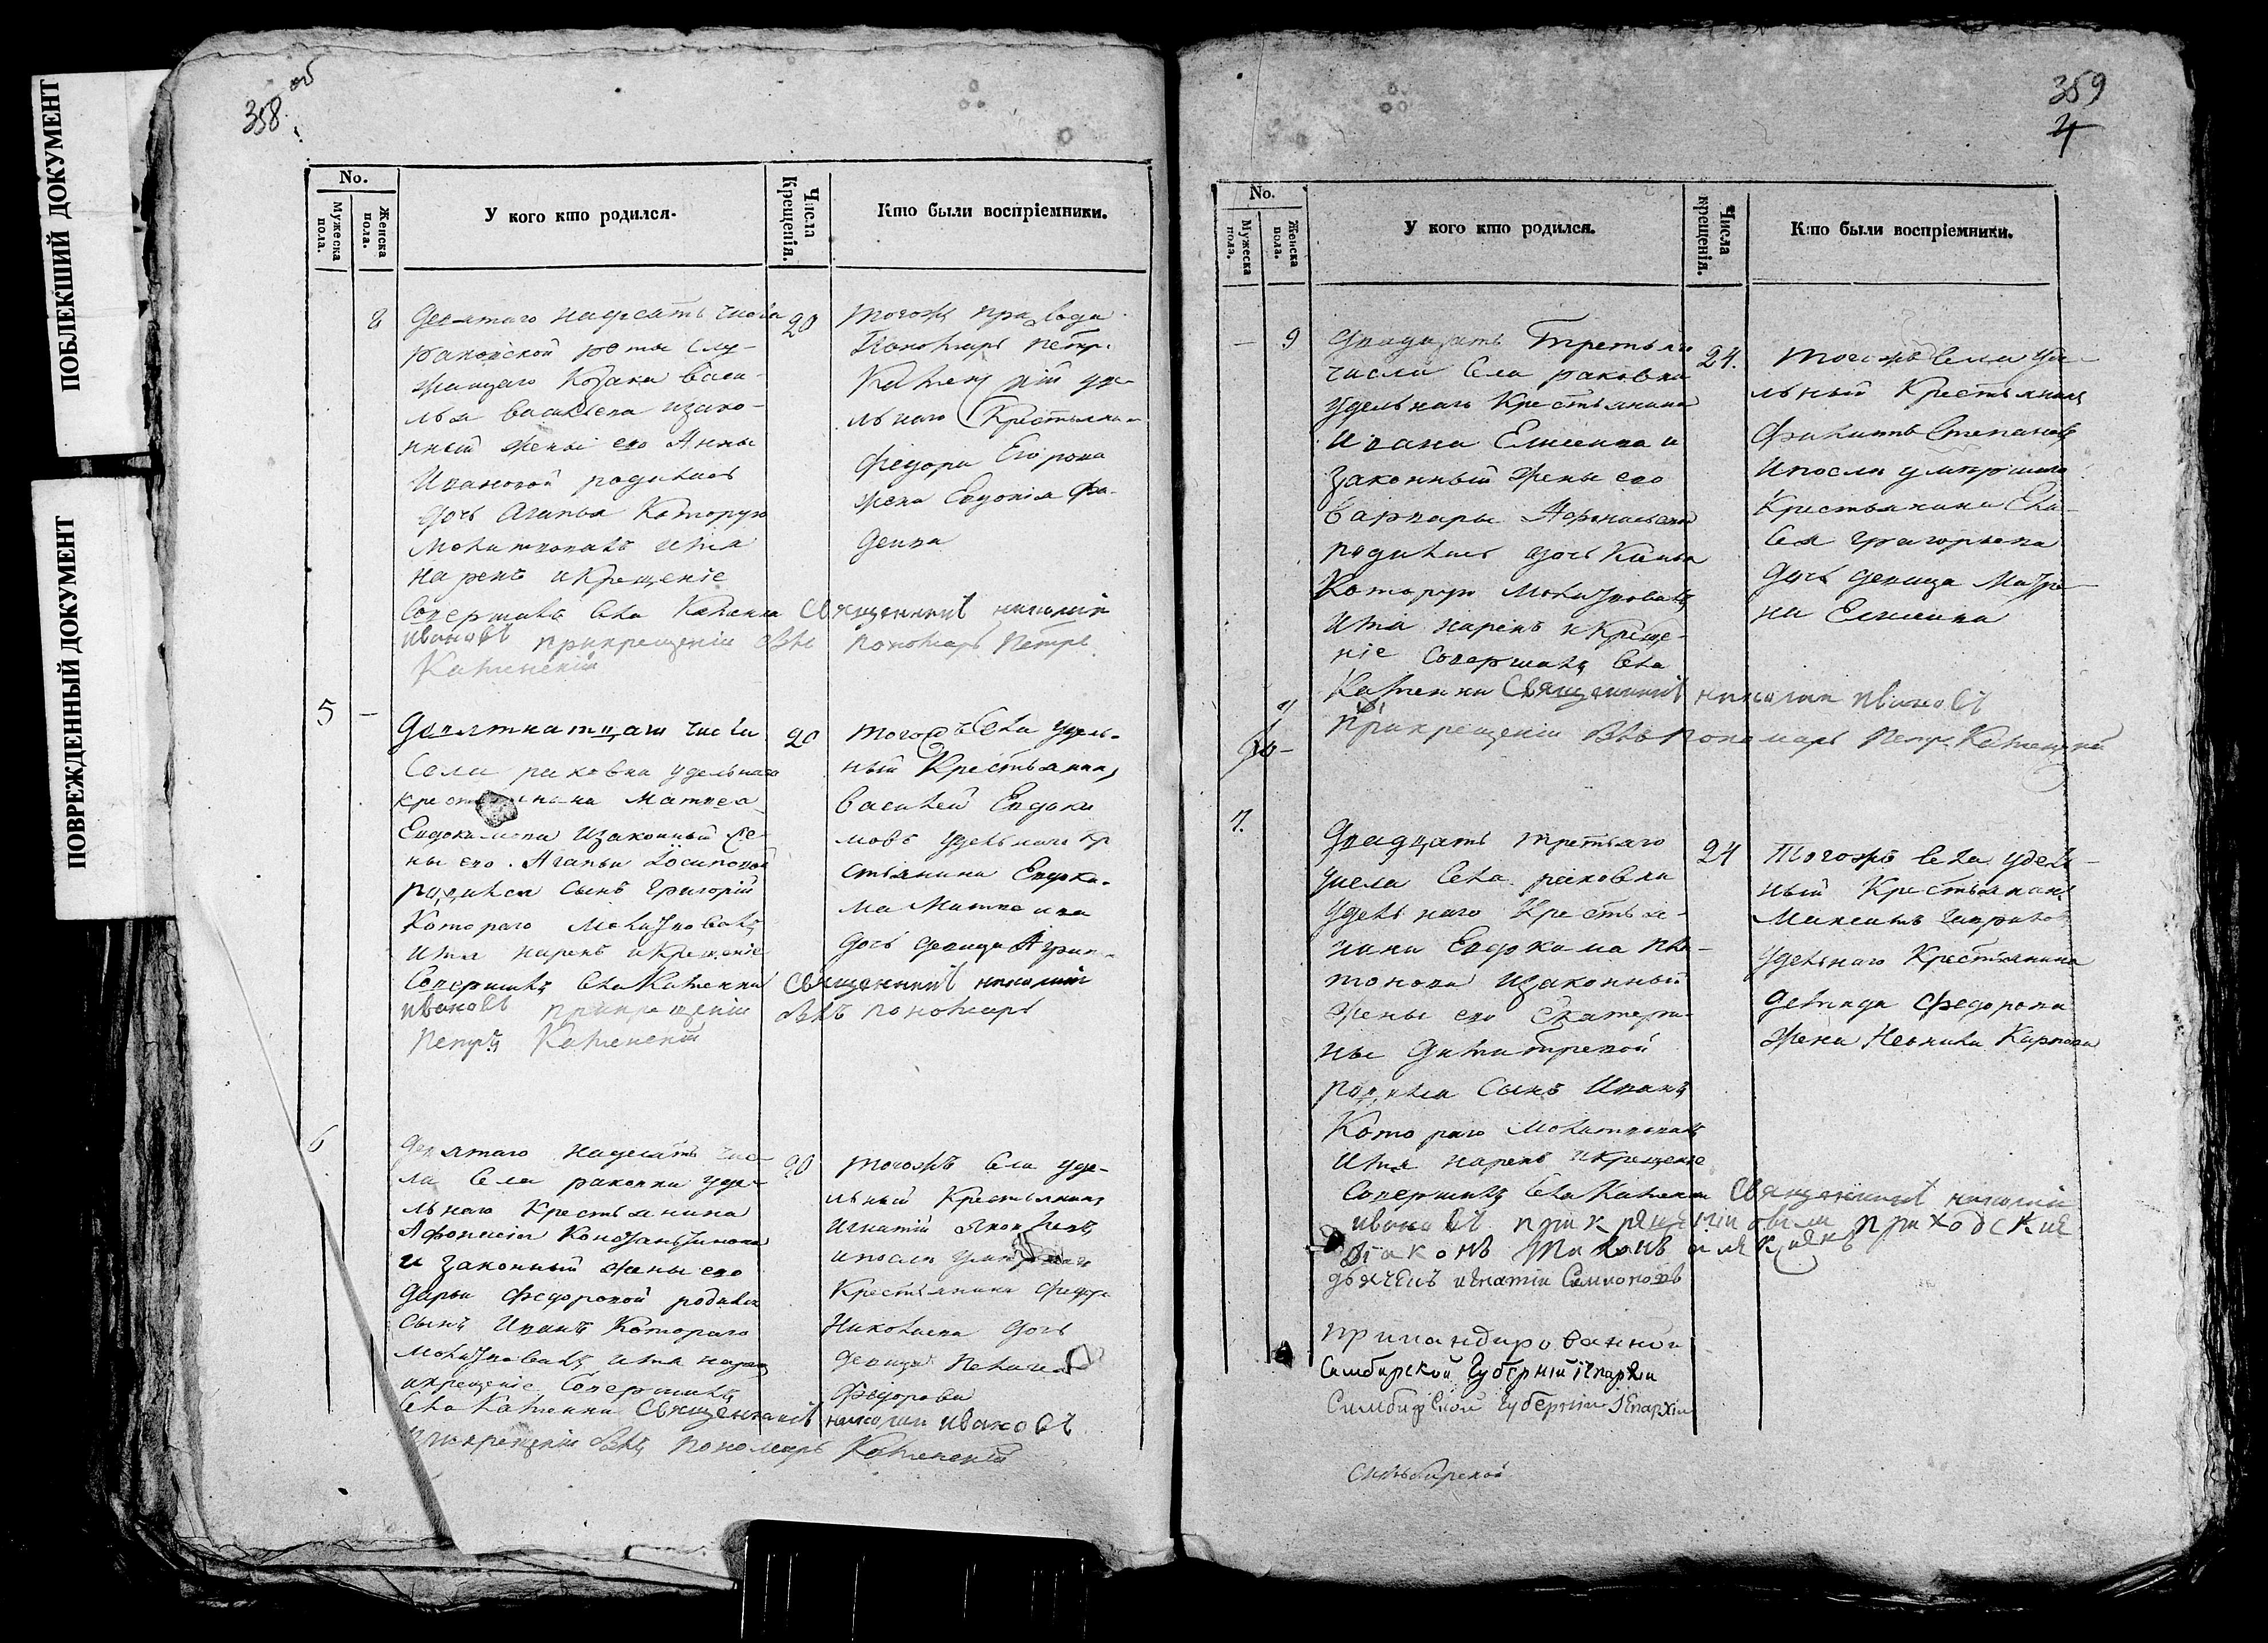 ПОБЛЕКШИЙ ДОКУМЕНТ
ПОВРЕЖДЕННЫЙ ДОКУМЕНТ
358 об
No.
Мужеска пола.
Женска пола.
У кого кто родился.
Числа Крещенія.
Кто были воспріемники.
8
Девятаго надесять числа
раковской роты слу-
жащаго Козака Васи-
лья Васильева изако-
нный жены его Анны
Ивановой родилась
дочь Агапья Которую
Молитвовалъ имя
нарекъ и Крещеніе
Совершилъ села Каменки Священникъ николай
ивановъ прикрещеніи былъ пономарь Петръ
Каменскій
20
Тогожъ
Пономарь Петръ
Каменскій уде-
льнаго Крестьяни-
Федора Егорова
жена Евдокія Фа-
деива
5 —
Девятнатцать числа
Села раковки удельнаго
крестьянина Матвея
Евдокимова изаконный же-
ны его Агапьи Іосиповой
родился сынъ Григорій
Котораго Молитвовалъ
имя нарекъ и Крещеніе
Совершилъ села Каменки Священникъ николай
ивановъ прикрещеніи былъ пономарь
Петръ Каменскій
20
Тогожъ села удель-
ный Крестьянинъ
Василей Евдоки
мовъ удельнаго кр
стьянина Евдоки-
ма Матвеива
дочь девица Агрип-
6
Девятаго надесять чис-
ла Села раковки уде-
льнаго Крестьянина
Афонасія Констаньтинова
и законный жены его
Дарьи Федоровой родился
сынъ Иванъ Котораго
молитвовалъ имя нарекъ
икрещеніе Совершилъ
села Каменки Священникъ николай ивановъ
прикрещеніи былъ пономарь Каменскій
20
Тогожъ села уде-
льный Крестьянинъ
Игнатій Яковлевъ
ипосли умершаго
Крестьянина Федора
Николаева дочь
девица Пелагея
Федорова
359
4
No.
Мужеска пола.
Женска пола.
У кого кто родился.
Числа крещенія.
Кто были воспріемники.
— 9
Двадцать Третьяго
числа Села раковки
удельнаго Крестьянина
Ивана Елисеива и
законный жены его
Варвары Афонасьевой
родилась дочь
Которую Молитвовалъ
имя нарекъ и Креще-
ніе Совершилъ села
Каменки Священникъ николай ивановъ
прикрещеніи былъ пономарь Петръ Каменскій
24.
Тогожъ села уде-
льный Крестьянинъ
Филипъ Степановъ
ипосли умершаго
Крестьянина Ели-
сея Григорьева
дочь девица Матре-
на Елисеива
7.
Двадцать третьяго
числа села раковки
удельнаго Крестья-
нина Евдокима Пла-
тонова изаконный
жены его Екатери-
ны Дмитревой
родился Сынъ Иванъ
Котораго Молитвовалъ
имя нарекъ и крещеніе
Совершилъ села Каменки Священникъ николай
ивановъ при крещеніи были приходския
дьячекъ игнатій Симионовъ
24
Тогожъ села удель-
ный Крестьянинъ
Максимъ Гавриловъ
удельнаго Крестьянина
Демида Федорова
жена Неонила Карпова
прикандированной
Симбирской Губерніи Іепархіи
Симбирской Губерніи Іепархіи
Синьбирской